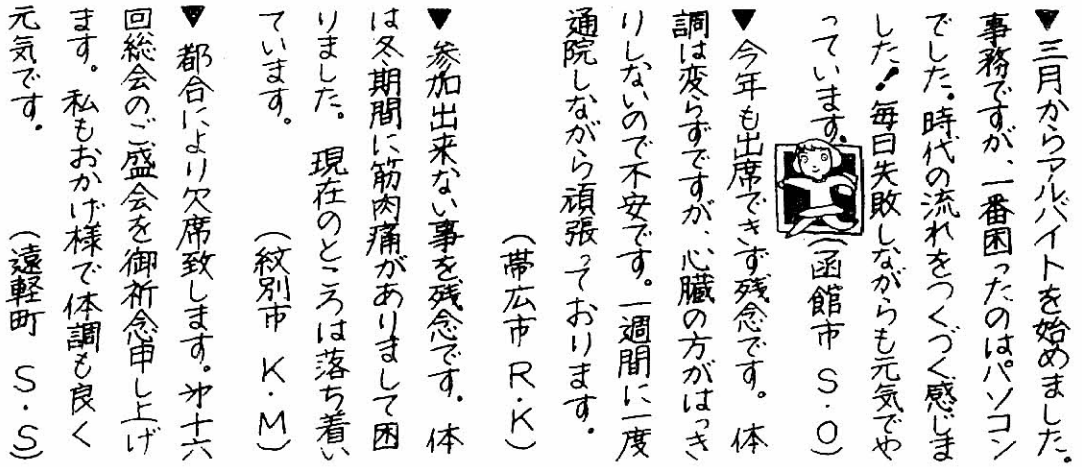 ▼三月からアルバイトを始めました。
事務ですが、一番困ったのはパソコン
でした。時代の流れをつくづく感じま
した!毎日失敗しながらも元気でや
っています。(函館市 S・O)
▼今年も出席できず残念です。体
調は変らずですが、心臓の方がはっき
りしないので不安です。一週間に一度
通院しながら頑張っております。
(帯広市 R・K)
▼参加出来ない事を残念です。体
は冬期間に筋肉痛がありまして困
りました。現在のところは落ち着い
ています。(紋別市 K・M)
▼都合により欠席致します。㐧十六
回総会のご盛会を御祈念申し上げ
ます。私もおかげ様で体調も良く
元気です。(遠軽町 S・S)